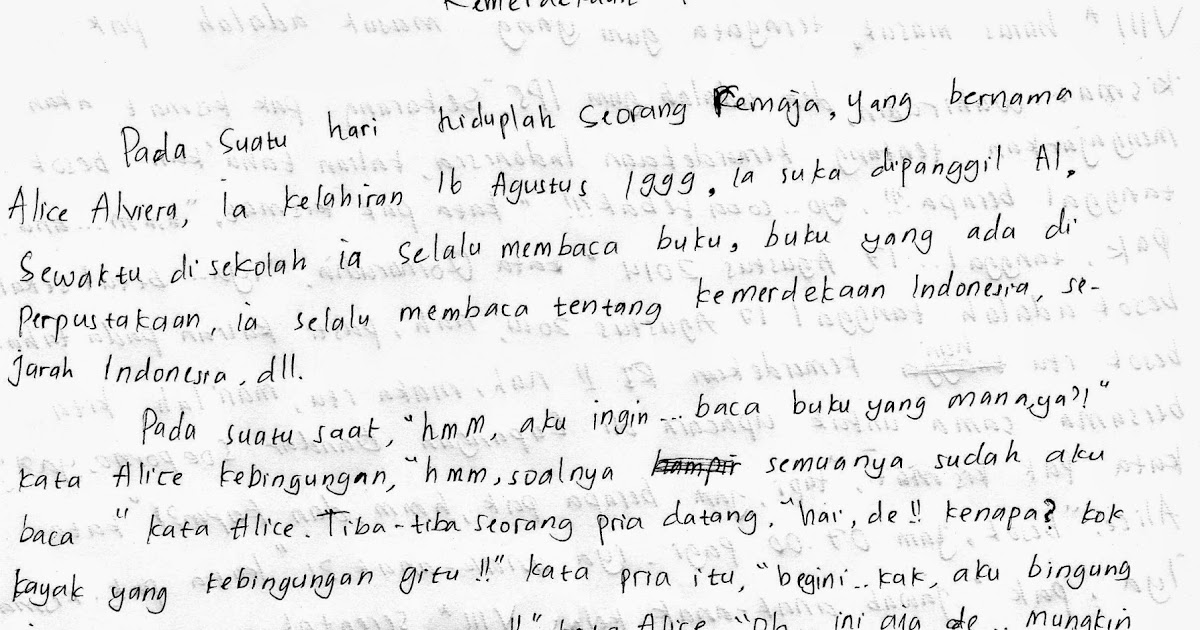 Kemerdekaan
Pada Suatu hari hiduplah Seorang Remaja, yang bernama
Alice Alviera, ia kelahiran 16 Agustus 1999, ia suka dipanggil Al,
Sewaktu di sekolah ia Selalu membaca buku, buku yang ada di
Perpustakaan, ia selalu membaca tentang kemerdekaan Indonesia, se-
jarah Indonesia, dll.
Pada suatu saat, "hmm, aku ingin... baca buku yang mana,ya?!"
kata Alice kebingungan, "hmm, soalnya hampir semuanya sudah aku
baca" kata Alice. Tiba-tiba seorang pria datang, "hai, de!! kenapa? kok
kayak yang kebingungan gitu!!" kata pria itu, "begini.. kak, aku bingung
!!" kata Alice "Oh, ini aja de.. mungkin